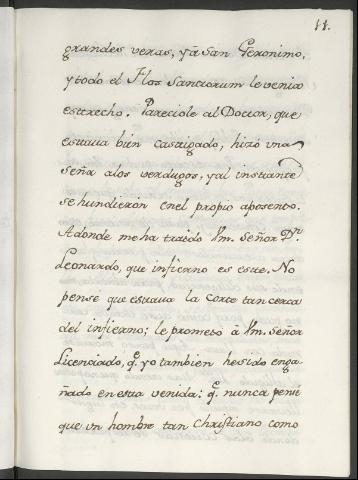 11.
grandes veras, y â San Geronimo,
y todo el Flos Sanctorum le venia
estrecho. Pareciole al Doctor, que
estaua bien castigado, hizo vna
seña a los verdugos, y al instante
se hundieron en el propio aposento.
Adonde me ha traido Vm. Señor Dn.
Leonardo, que infierno es este. No
pensé que estaua la Corte tan cerca
del infierno; le prometo â Vm. Señor
Licenciado, q.e yo tambien he sido enga-
ñado en esta venida; q.e nunca pensé
que vn hombre tan Christiano como